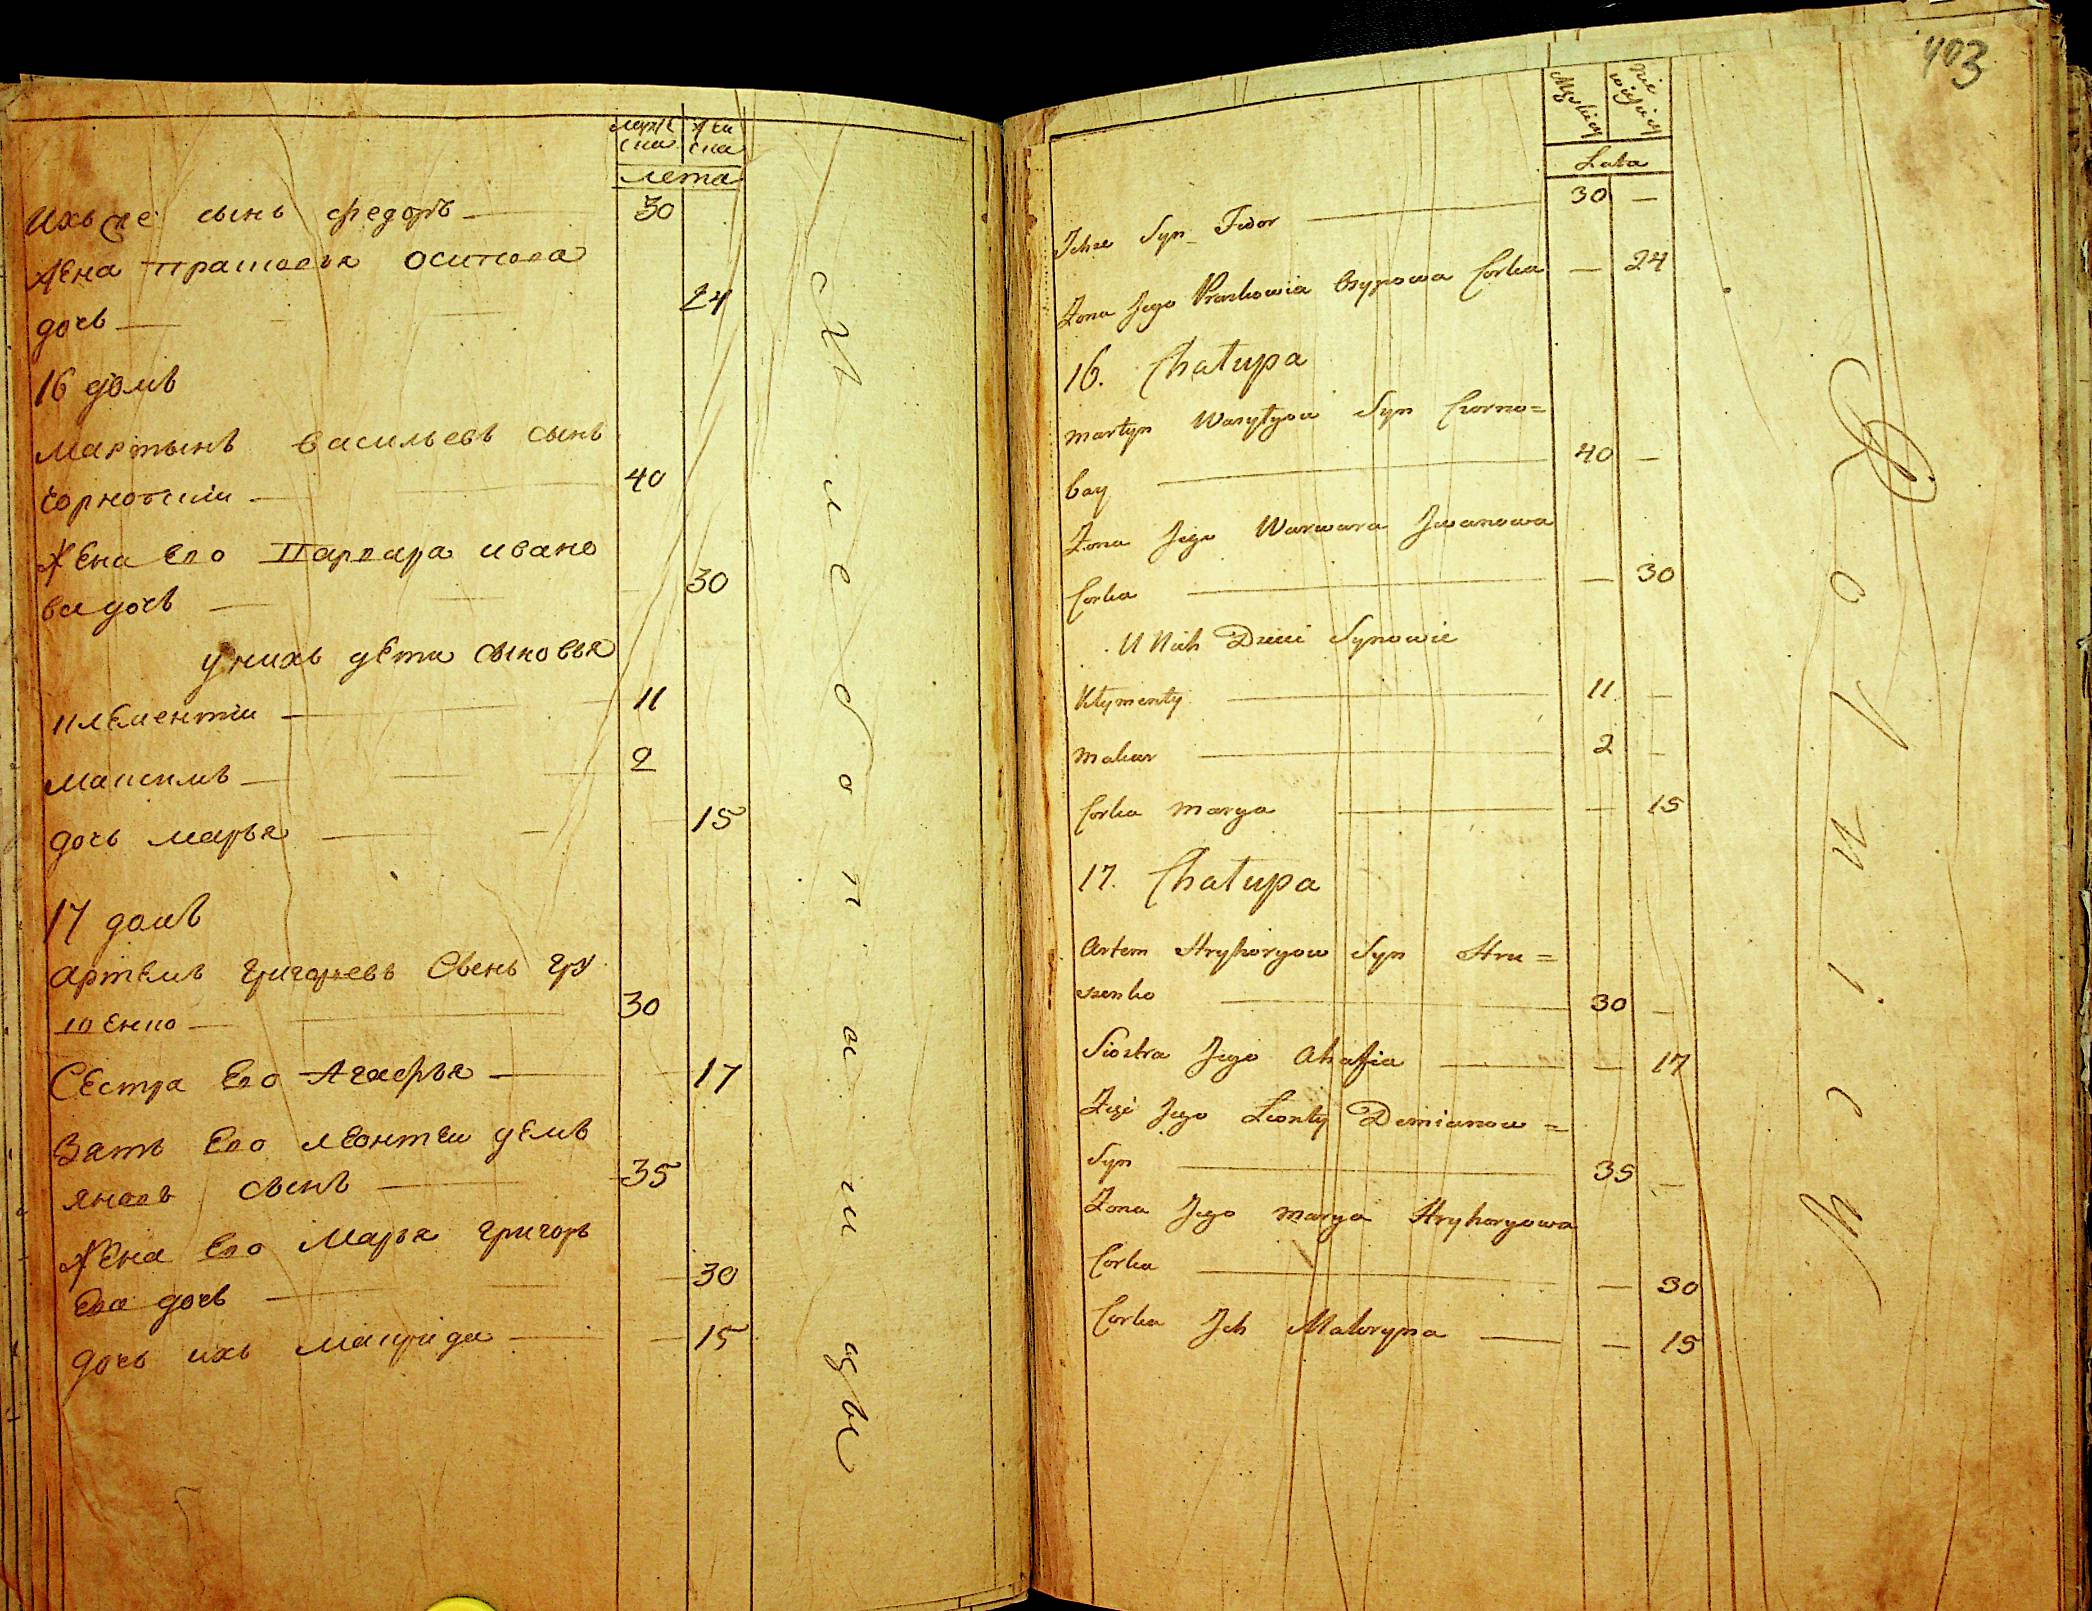 мужеска
женска
лета
ихъ же сынъ федоръ 30
жена прасковья осипова
дочь 24
16 домъ
мартынъ васильевъ сынъ
чорнобаи 40
жена его варвара ивано
ва дочь 30
у нихъ дети сыновья
климентии 11
макаимъ 2
дочь марья 15
17 домъ
артемъ григорьевъ сынъ гру
шенко 30
сестра его Агафья 17
зать его леонтеи демь
яновъ сынъ 35
жена его марья григорь
ева дочь 30
дочь ихъ макрида 15
хлебопашцы
403
Męskiey
Niewiesciey
Lata
Jchże Syn Fedor 30 —
Żona Jego Praskowia Osypowa Corka — 24
16. Chałupa
Martyn Wasylyow Syn Czorno=
bay 40 —
Żona Jego Warwara Jwanowa
Corka — 30
U Nich Dzieci Synowie
Klymenty 11 —
Makar 2 —
Corka Marya — 15
17. Chałupa
Artem Hryhoryow Syn Hru=
szenko 30 —
Siostra Jego Ahafia — 17
Zięć Jego Leonty Demianow=
Syn 35 —
Żona Jego Marya Hryhoryowa
Corka — 30
Corka Jch Makryna — 15
Rolnicy